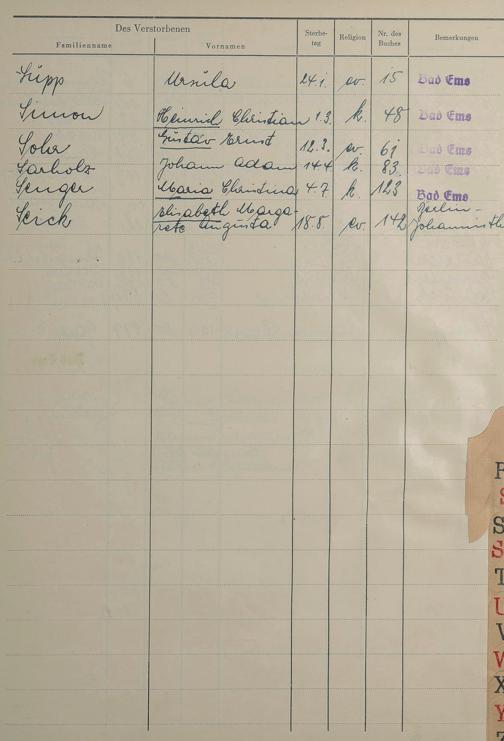 Des Verstorbenen
Familienname Vornamen Sterbe-tag Religion Nr. des Buches Bemerkungen
Süpp Ursula 24.1. ev. 15 Bad Ems
Simon Heinrich Christian 1.3. k. 48 Bad Ems
Sohr Gustav Ernst 12.3. ev. 61 Bad Ems
Sarholz Johann Adam 14.4 k. 83 Bad Ems
Senger Maria Christina 4.7 k. 123 Bad Ems
Seick Elisabeth Marga-
rete Augusta 18.8. ev. 142 Berlin-
Johannisth
S
S
T
U
V
W
X
Y
Z